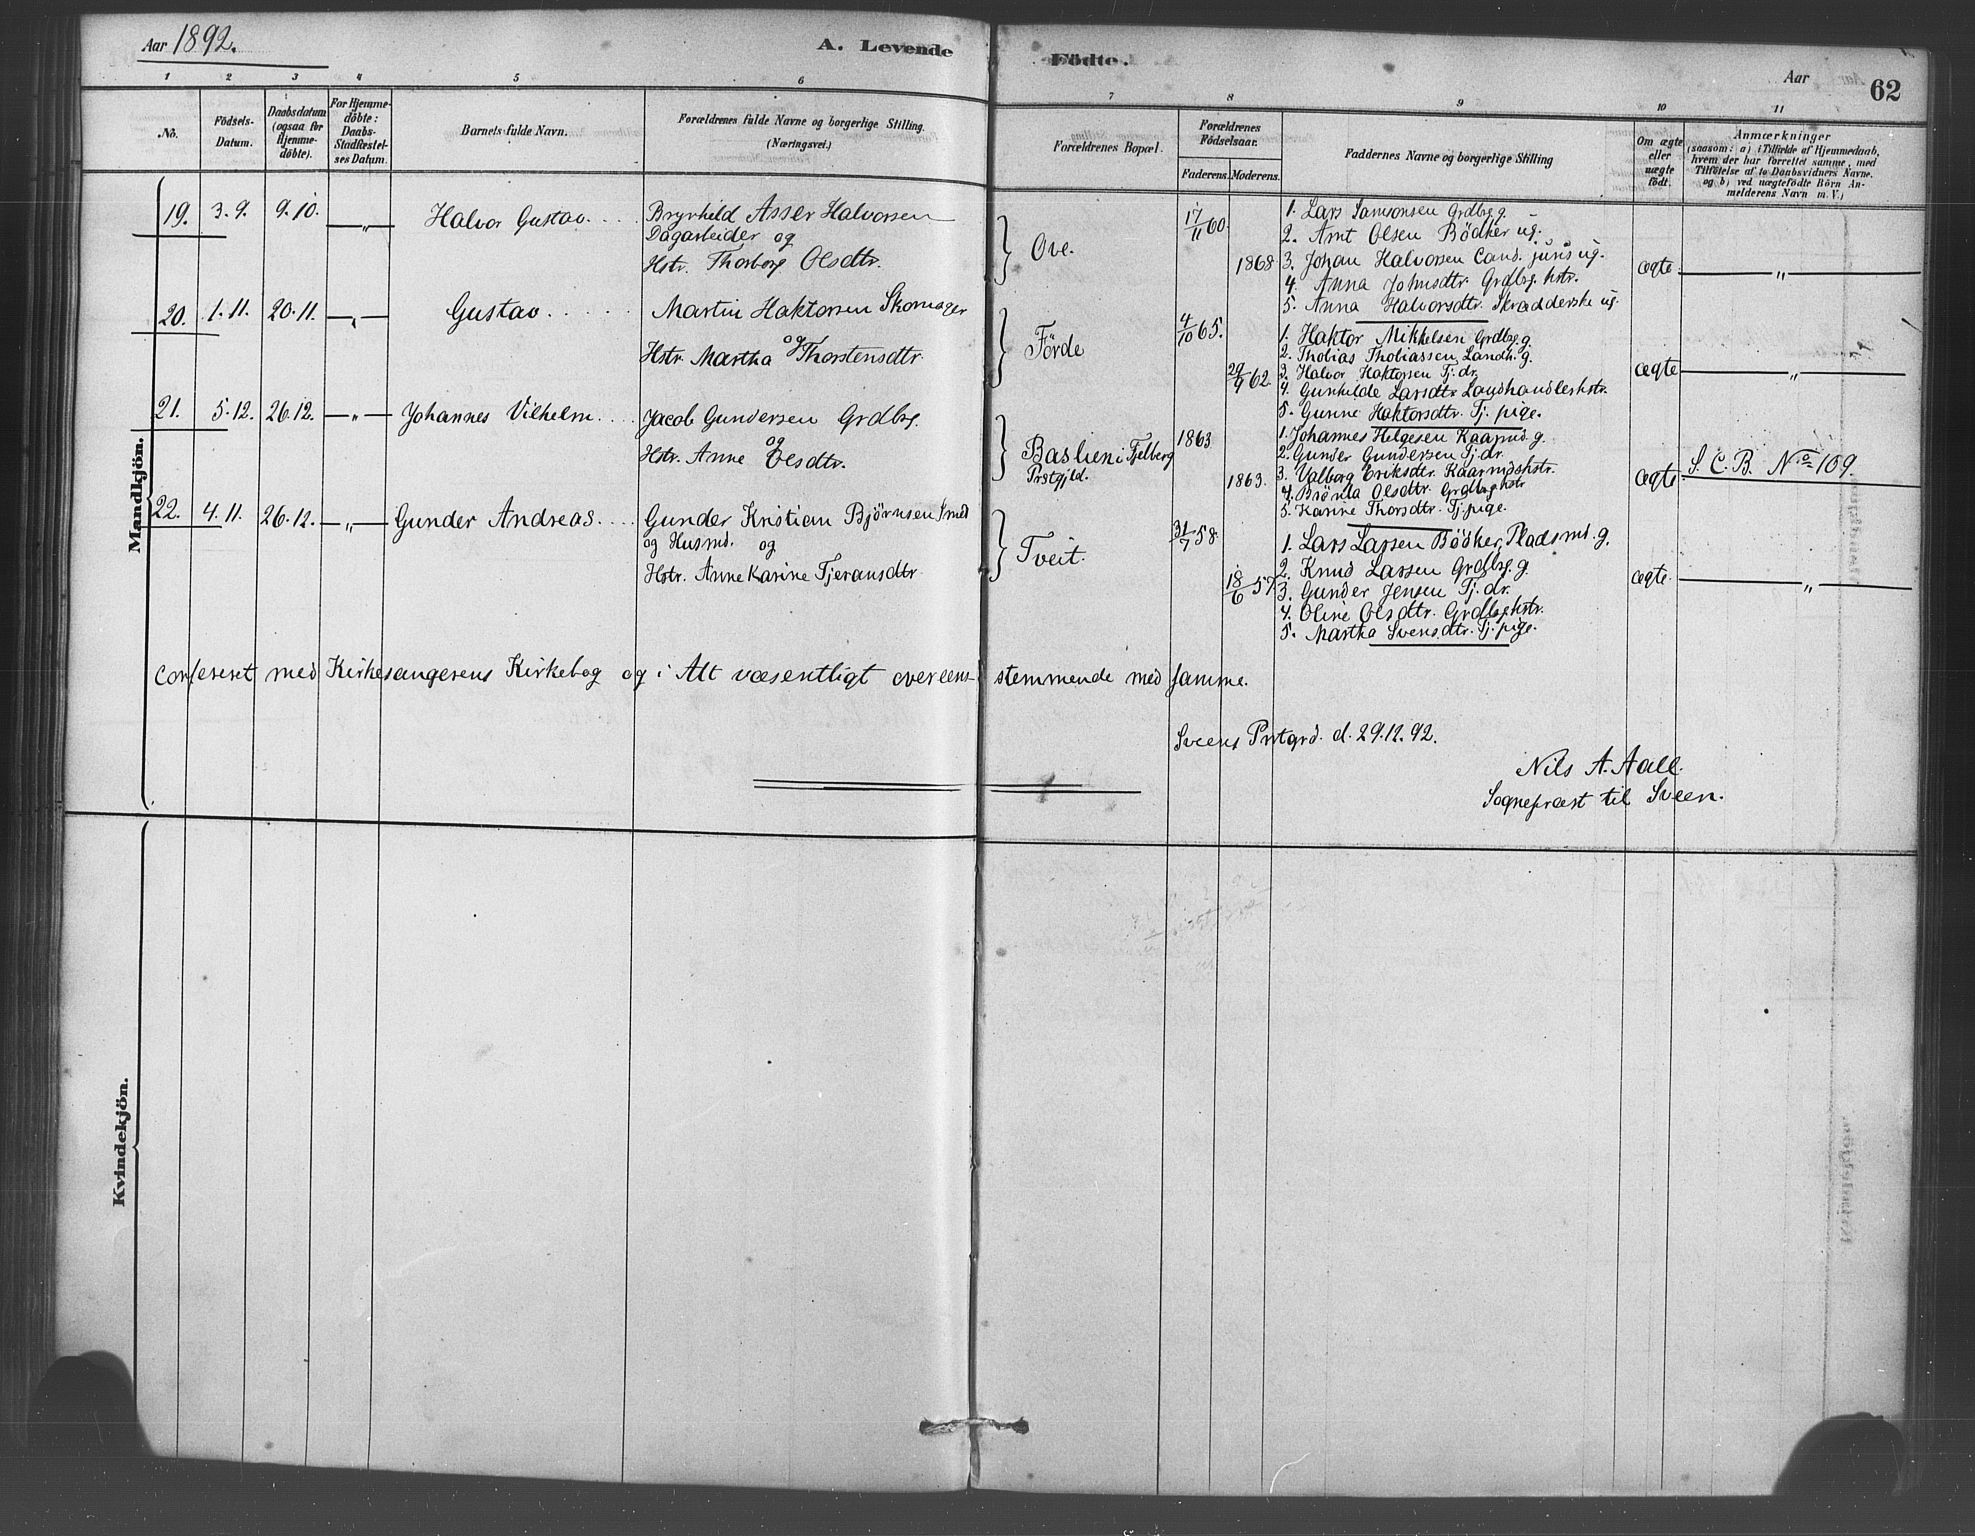 Aar 1892.
A. Levende Födte.
Aar
62
1 2 3 4 5 6 7 8 9 10 11
No.
Födsels-
Datum.
Daabsdatum
(ogsaa for
Hjemme-
döbte).
For Hjemme-
döbte:
Daabs-
Stadfæstel-
ses Datum.
Barnets fulde Navn.
Forældrenes fulde Navne og borgerlige Stilling.
(Næringsvei.)
Forældrenes Bopæl.
Forældrenes
Födselsaar.
Faderens. Moderens.
Faddernes Navne og borgerlige Stilling
Om ægte
eller
uægte
födt.
Anmærkninger
(saasom: a) i Tilfælde af Hjemmedaab,
hvem der har forrettet samme, med
Tilföielse af to Daabsvidners Navne.
og b) ved uægtefödte Börn An-
melderens Navn m. V.)
Mandkjön.
19. 3.9. 9.10. — „ — Halvor Gustav. . . .
Bryrhild Asser Halvorsen
Dagarbeider og
Hstr. Thorborg Olsdtr.
Ove.
17/11 60.
1868
1. Lars Samsonsen Grdbg. g.
2. Arnt Olsen Bödker ug.
3. Johan Halvorsen Cand. juris ug.
4. Anna Johnsdtr. Grdbg. hstr.
5. Anna Halvorsdtr. Skrædderske ug.
ægte — „ —
20. 1.11. 20.11. — „ — Gustav . . . . .
Martin Haktorsen Skomager
og
Hstr. Martha Thorstensdtr.
Förde
4/10 65.
29/9 62.
1. Haktor Mikkelsen Grdbg. g.
2. Thobias Thobiassen Landh. g.
3. Halvor Haktorsen Tj. dr.
4. Gunhilde Larsdtr. Landhandlerhstr.
5. Gunne Haktorsdtr. Tj. pige.
ægte — „ —
21. 5.12. 26.12. — „ — Johannes Vilhelm. . . .
Jacob Gundersen Grdbg.
og
Hstr. Anne Olsdtr.
Baslien i Fjelberg
Prstgjld.
1863
1863.
1. Johannes Helgesen Kaarmd. g.
2. Gunder Gundersen Tj. dr.
3. Valborg Eriksdtr. Kaarmdshstr.
4. Brönla Olsdtr. Grdbg. hstr
5. Karine Thorsdtr. Tj. pige.
ægte
S. C. B. No 109.
22. 4.11. 26.12. — „ — Gunder Andreas. . . .
Gunder Kristian Bjørnsen Smed
og Husmd. og
Hstr. Anne Karine Tjeransdtr.
Tveit.
31/7 58.
18/6 57
1. Lars Larsen Bödker, Pladsmd. g.
2. Knud Larsen Grdbg. g.
3. Gunder Jensen Tj. dr.
4. Oline Olsdtr. Grdbg. hstr.
5. Martha Svensdtr. Tj. pige.
ægte. — „ —
Confereret med Kirkesangerens Kirkebog og i Alt væsentligt overens- stemmende med samme.
Sveens Prstgrd. d. 29.12.92.
Nils A. Aall.
Sognepræst til Sveen.
Kvindekjön.